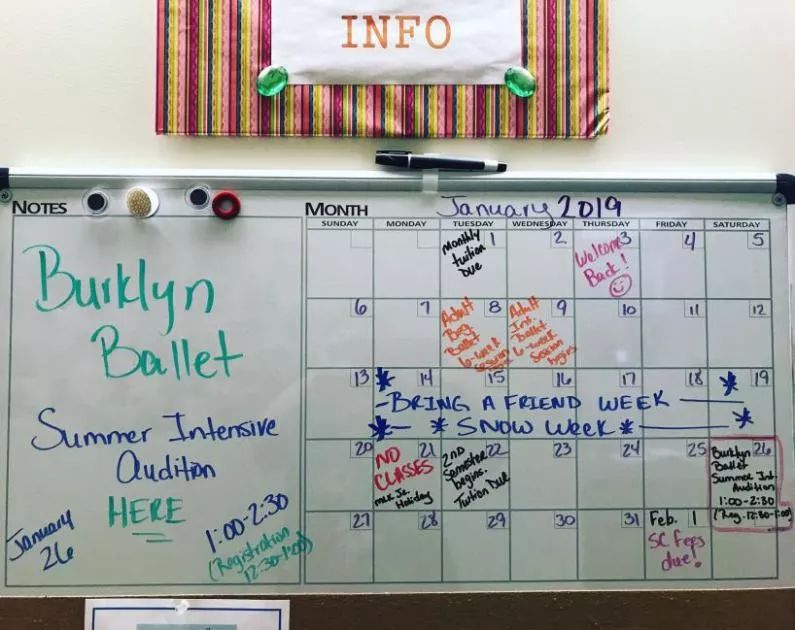 INFO
NOTES
Burklyn
Ballet
Summer Intensive
Audition
HERE
January
26
1:00-2:30
(Registration
12:30-1:00)
MONTH January 2019
SUNDAY MONDAY TUESDAY WEDNESDAY THURSDAY FRIDAY SATURDAY
1 2 3 4 5
Monthly
tuition
Due
Welcome
Back!
6 7 8 9 10 11 12
Adult
Beg.
Ballet
6-week
Session
begins
Adult
Int.
Ballet
6-week
Session
begins
13 14 15 16 17 18 19
* *
-BRING A FRIEND WEEK
* * SNOW WEEK * *
20 21 22 23 24 25 26
NO
CLASSES
MLK Jr.
Holiday
2ND
Semester
begins.
Tuition Due
Burklyn
Ballet
Summer Int.
Audition
1:00-2:30
(Reg. 12:30-1:00)
27 28 29 30 31 Feb. 1
SC Fees
due!